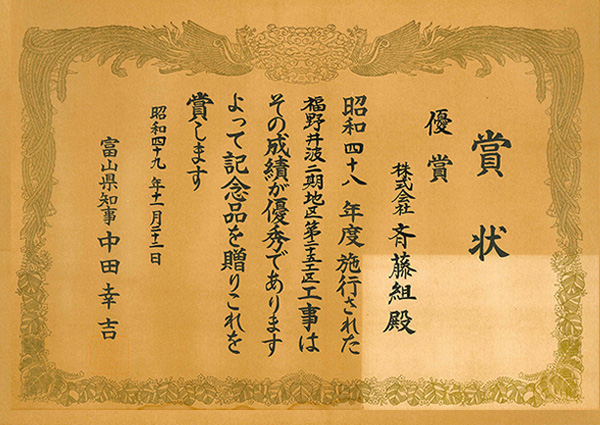 賞状
優賞
株式会社 斉藤組殿
昭和四十八年度施行された
福野井波二期地区第二五工区工事は
その成績が優秀であります
よって記念品を贈りこれを
賞します
昭和四十九年十一月二十二日
富山県知事 中田幸吉